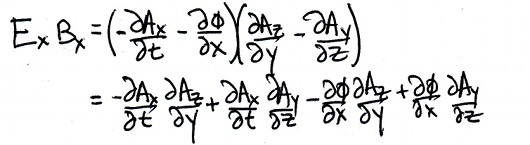 E_x B_x = (-∂A_x/∂t - ∂ϕ/∂x)(∂A_z/∂y - ∂A_y/∂z)
= -∂A_x/∂t ∂A_z/∂y + ∂A_x/∂t ∂A_y/∂z - ∂ϕ/∂x ∂A_z/∂y + ∂ϕ/∂x ∂A_y/∂z